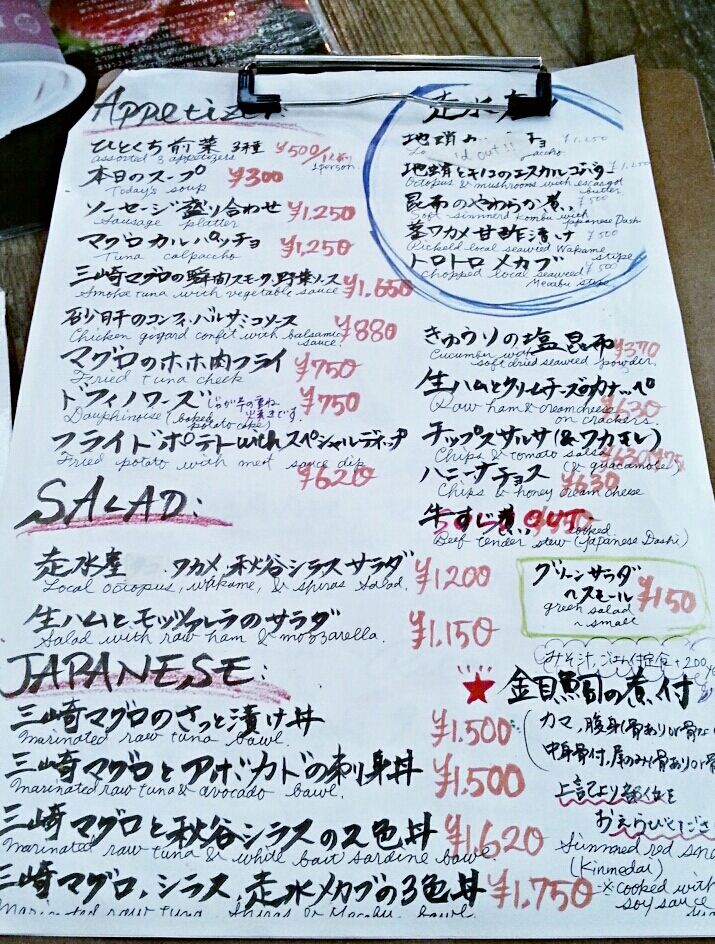 Appetizer:
ひとくち前菜 3種 ¥500/1人前
assorted 3 appetizers 1person.
本日のスープ ¥300
Today's soup
ソーセージ盛り合わせ ¥1,250
Sausage platter
マグロカルパッチョ ¥1,250
Tuna calpacho
三崎マグロの瞬間スモーク,野菜ソース ¥1,650
Smoke tuna with vegetable sauce
砂肝のコンフィ,バルサミコソース ¥880
Chicken gizard confit with balsamic sauce.
マグロのホホ肉フライ ¥750
Fried tuna cheek
ドフィノワーズ じゃが芋の重ね ¥750
Dauphinoise (baked potato cake)
フライドポテトwithスペシャルディップ
Fried potato with meat sauce dip
¥620
走水
地蛸 チョ ¥1,250
地蛸とキノコのエスカルゴバター ¥1,250
Octopus & mushrooms with escargot butter
昆布のやわらか煮 ¥500
Soft simmered kombu with Japanese Dashi
茎ワカメ甘酢漬け ¥500
Pickeld local seaweed Wakame stipe
トロトロメカブ ¥500
chopped local seaweed
きゅうりの塩昆布 ¥370
Cucumber with soft dried seaweed powder.
生ハムとクリームチーズのカナッペ ¥630
Raw ham & cream cheese on crackers.
チップスサルサ(&ワカモレ)
Chips & tomato salsa (& guacamole)
ハニーナチョス ¥630
Chips & honey cream cheese
牛すじ煮
Beef tender stew (Japanese Dashi)
SALAD:
走水産 ワカメ,秋谷シラスサラダ ¥1200
Local octopus, wakame, & shiras Salad.
生ハムとモッツァレラのサラダ ¥1,150
Salad with raw ham & mozzarella.
グリーンサラダ
~スモール ¥150
green salad
~small
みそ汁,ごはん付定食+200
JAPANESE:
三崎マグロのさっと漬け丼 ¥1.500
marinated raw tuna bawl.
三崎マグロとアボカドの刺身丼 ¥1,500
marinated raw tuna & avocado bawl.
三崎マグロと秋谷シラスの2色丼 ¥1,620
marinated raw tuna & white bait sardine bawl.
三崎マグロ,シラス,走水メカブの3色丼 ¥1,750
Marinated raw tuna, Shiras & Mecabu. bawl.
★ 金目鯛の煮付
カマ,腹身(骨ありor骨な
中身骨付,尾のみ(骨ありor骨
上記より部位を
おえらびくださ
Simmered red sna
(Kinmedai)
※cooked with
soy sauce